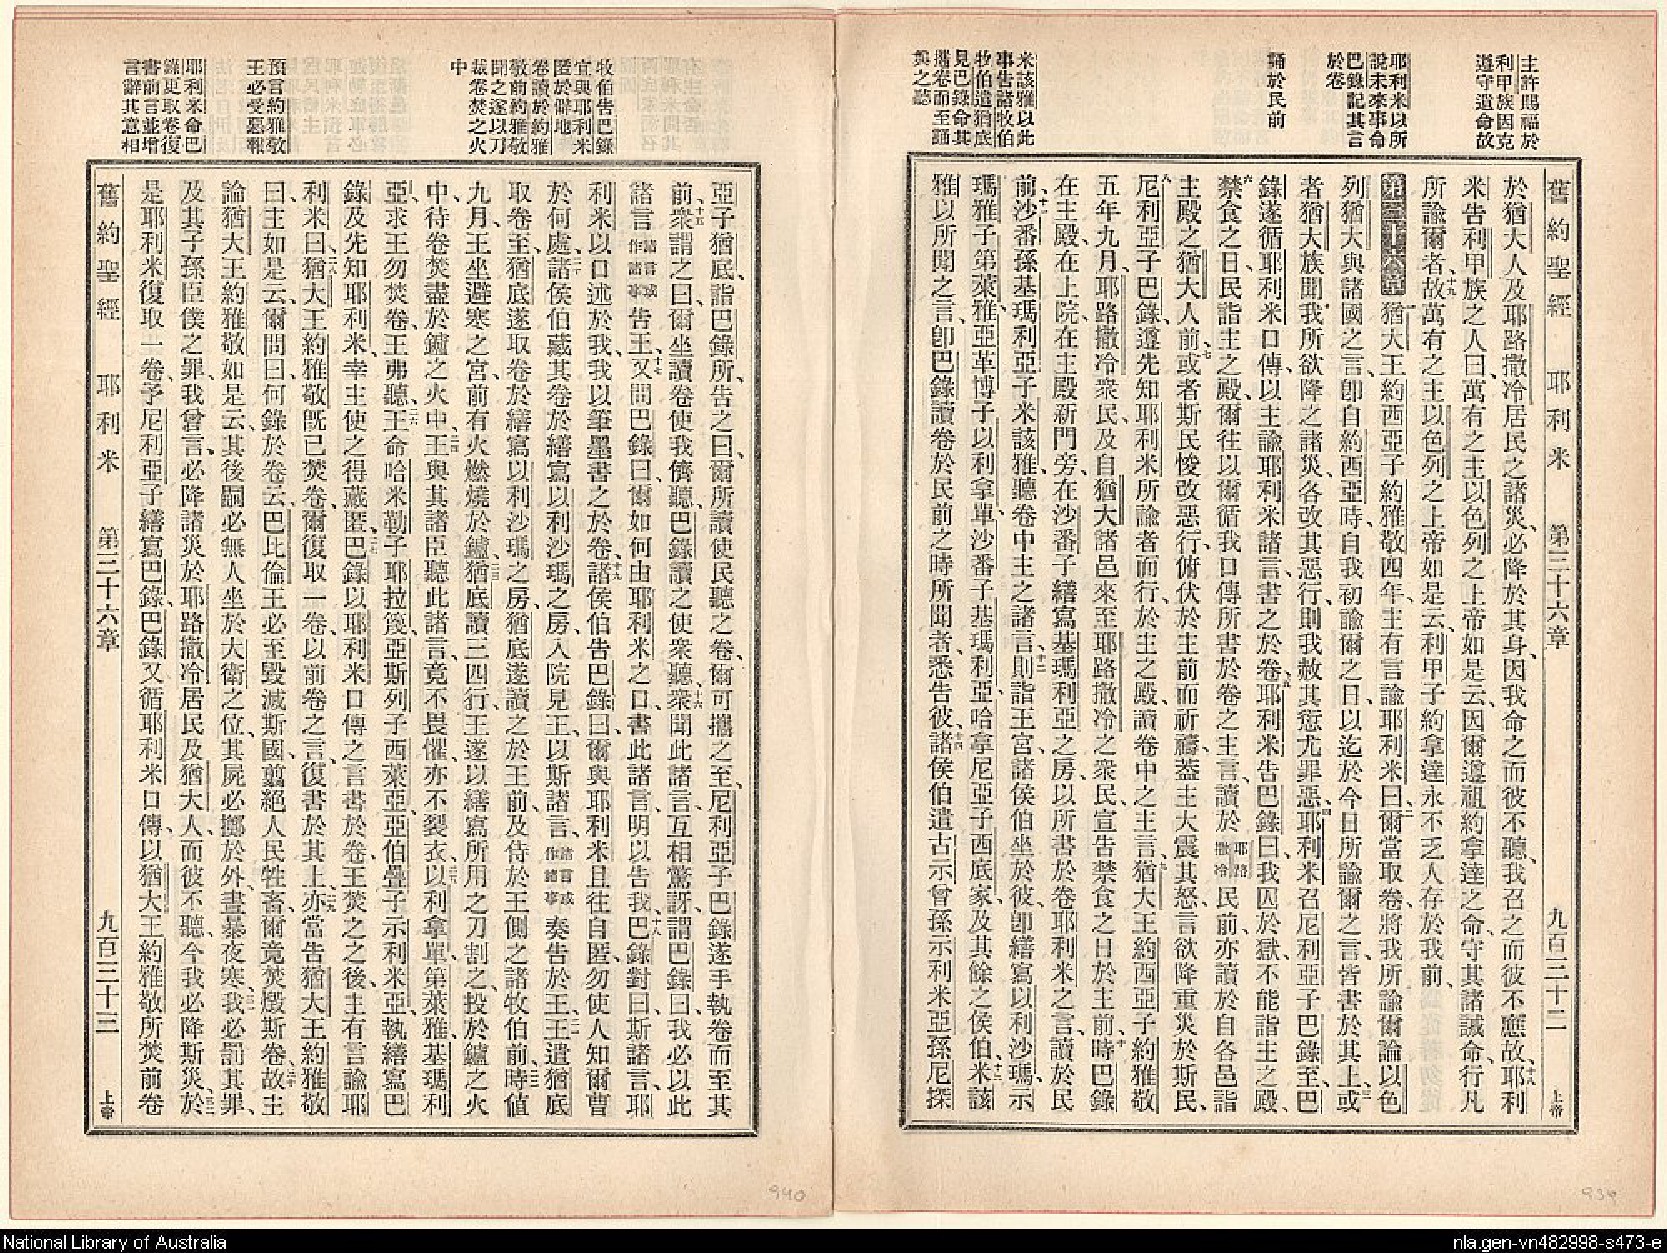 主許賜福於
利甲族因克
遵守遺命故
耶利米以所
說未來事命
巴錄記其言
於卷
誦於民前
米該雅以此
事告諸牧伯
牧伯遣猶底
見巴錄命其
攜卷而至誦
與之聽
舊約聖經 耶利米 第三十六章 九百三十二 上帝
於猶大人及耶路撒冷居民之諸災、必降於其身、因我命之而彼不聽、我召之而彼不應故、十八耶利
米告利甲族之人曰、萬有之主以色列之上帝如是云、因爾遵祖約拿達之命、守其諸誡命、行凡
所諭爾者、十九故萬有之主以色列之上帝如是云、利甲子約拿達、永不乏人存於我前、
第三十六章 一猶大王約西亞子約雅敬四年、主有言諭耶利米曰、二爾當取卷、將我所諭爾論以色
列猶大與諸國之言、卽自約西亞時、自我初諭爾之日、以迄於今日所諭爾之言、皆書於其上、三或
者猶大族聞我所欲降之諸災、各改其惡行、則我赦其愆尤罪惡、四耶利米召尼利亞子巴錄至、巴
錄遂循耶利米口傳、以主諭耶利米諸言、書之於卷、五耶利米告巴錄曰、我囚於獄、不能詣主之殿、
六禁食之日、民詣主之殿、爾往以爾循我口傳所書於卷之主言、讀於耶路撒冷民前、亦讀於自各邑詣
主殿之猶大人前、七或者斯民悛改惡行、俯伏於主前而祈禱、蓋主大震其怒、言欲降重災於斯民、
八尼利亞子巴錄、遵先知耶利米所諭者而行、於主之殿、讀卷中之主言、九猶大王約西亞子約雅敬
五年九月、耶路撒冷衆民、及自猶大諸邑來至耶路撒冷之衆民、宣告禁食之日於主前、十時巴錄
在主殿、在上院、在主殿新門旁、在沙番子繕寫基瑪利亞之房、以所書於卷耶利米之言、讀於民
前、十一沙番孫基瑪利亞子米該雅、聽卷中主之諸言、十二則詣王宮、諸侯伯坐於彼、卽繕寫以利沙瑪、示
瑪雅子第萊雅、亞革博子以利拿單、沙番子基瑪利亞、哈拿尼亞子西底家、及其餘之侯伯、十三米該
雅以所聞之言、卽巴錄讀卷於民前之時所聞者、悉告彼、十四諸侯伯遣古示曾孫示利米亞孫尼探
牧伯告巴錄
宜與耶利米
匿於僻地
卷讀於約雅
敬前約雅敬
聞之遂以刀
裁卷焚之火
中
預言約雅敬
王必受惡報
耶利米命巴
錄更取卷復
書前言並增
言辭其意相
亞子猶底、詣巴錄所、告之曰、爾所讀使民聽之卷、爾可攜之至、尼利亞子巴錄遂手執卷而至其
前、十五衆謂之曰、爾坐讀卷使我儕聽、巴錄讀之使衆聽、十六衆聞此諸言、互相驚訝、謂巴錄曰、我必以此
諸言諸言或作諸事告王、十七又問巴錄曰、爾如何由耶利米之口書此諸言、明以告我、十八巴錄對曰、斯諸言、耶
利米以口述於我、我以筆墨書之於卷、十九諸侯伯告巴錄曰、爾與耶利米且往自匿、勿使人知爾曹
於何處、二十諸侯伯藏其卷於繕寫以利沙瑪之房、入院見王、以斯諸言諸言或作諸事奏告於王、二一王遣猶底
取卷至、猶底遂取卷於繕寫以利沙瑪之房、猶底遂讀之於王前、及侍於王側之諸牧伯前、二二時値
九月、王坐避寒之宮、前有火燃燒於鑪、二三猶底讀三四行、王遂以繕寫所用之刀割之、投於鑪之火
中、待卷焚盡於鑪之火中、二四王與其諸臣聽此諸言、竟不畏懼、亦不裂衣、二五以利拿單、第萊雅、基瑪利
亞、求王勿焚卷、王弗聽、二六王命哈米勒子耶拉篾、亞斯列子西萊亞、亞伯疊子示利米亞、執繕寫巴
錄及先知耶利米、幸主使之得藏匿、二七巴錄以耶利米口傳之言書於卷、王焚之之後、主有言諭耶
利米曰、二八猶大王約雅敬旣已焚卷、爾復取一卷、以前卷之言、復書於其上、二九亦當告猶大王約雅敬
曰、主如是云、爾問曰、何錄於卷云、巴比倫王必至毀滅斯國、翦絕人民牲畜、爾竟焚燬斯卷、三十故主
論猶大王約雅敬如是云、其後嗣必無人坐於大衛之位、其屍必擲於外、晝暴夜寒、三一我必罰其罪、
及其子孫臣僕之罪、我曾言、必降諸災於耶路撒冷居民及猶大人、而彼不聽、今我必降斯災於
是耶利米復取一卷、予尼利亞子繕寫巴錄、巴錄又循耶利米口傳、以猶大王約雅敬所焚前卷
舊約聖經 耶利米 第三十六章 九百三十三 上帝
940
939
National Library of Australia
nla.gen-vn482998-s473-e